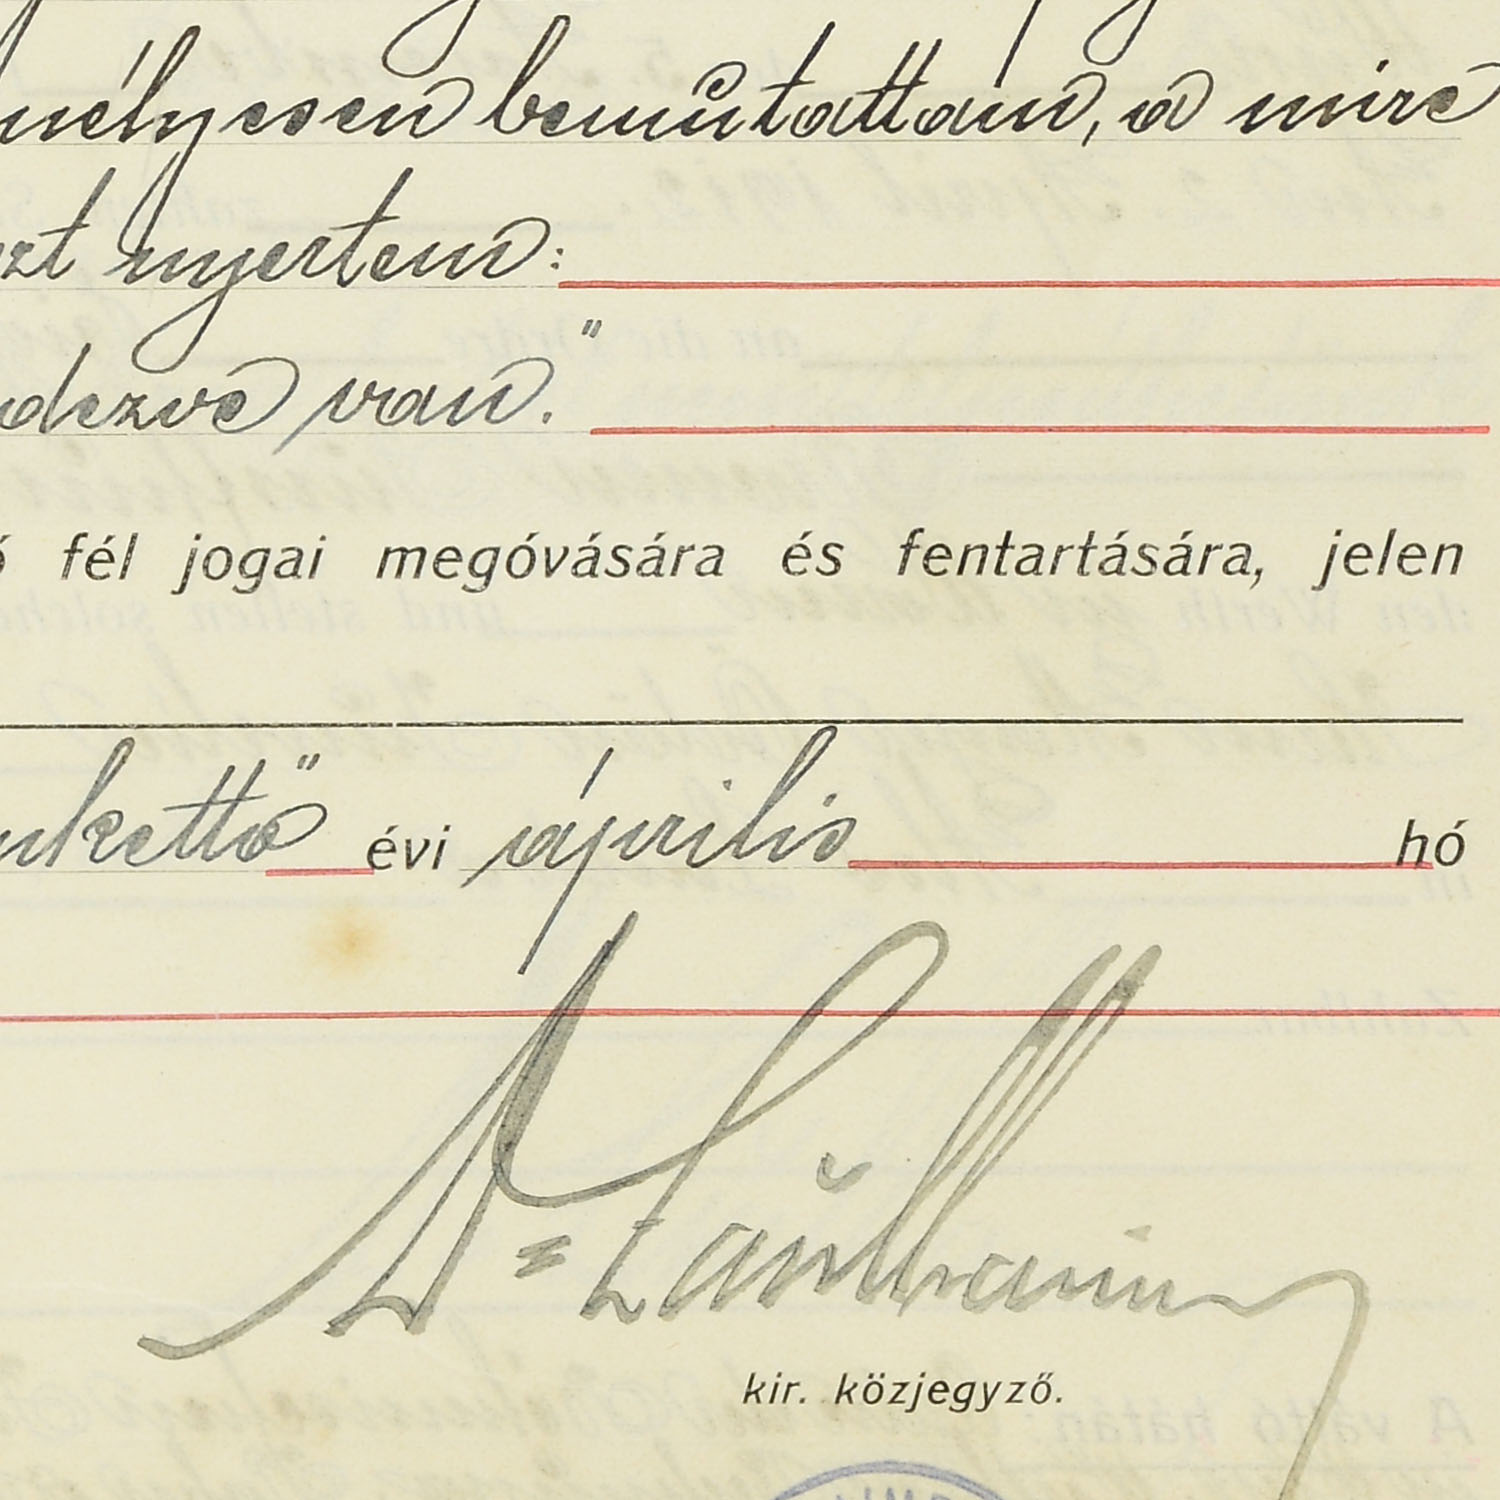 mélyesen bemutattam, a mire
zt nyertem:
dezve van."
ó fél jogai megóvására és fentartására, jelen
nkettő évi április hó
Dr
kir. közjegyző.